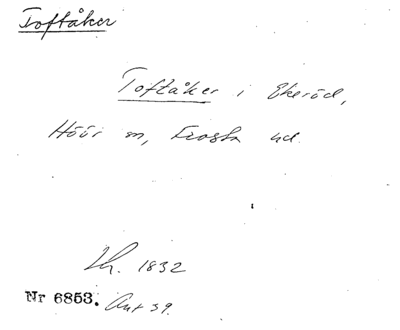 Toftåker
Toftåker i Ekeröd,
Höör sn, Frosta hd.
Lh. 1832
Nr 6853. Ant 39.